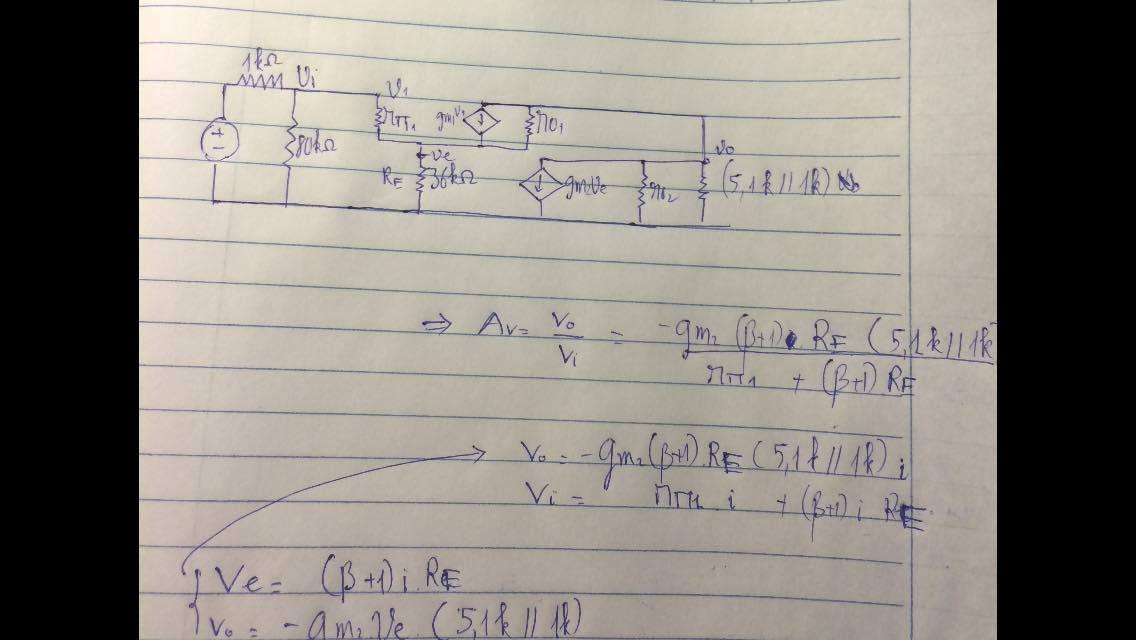 1kΩ Vi
V1
rπ1 gm1V1 ro1
80kΩ
Ve Vo
RE 36kΩ gm2Ve ro2 (5,1k//1k)
⇒ Av = Vo/Vi = -gm2 (β+1) RE (5,1k//1k / rπ1 + (β+1) RE
Vo = -gm2(β+1) RE (5,1k//1k) i
Vi = rπ1 i + (β+1) i RE
Ve = (β+1) i RE
Vo = -gm2 Ve (5,1k//1k)